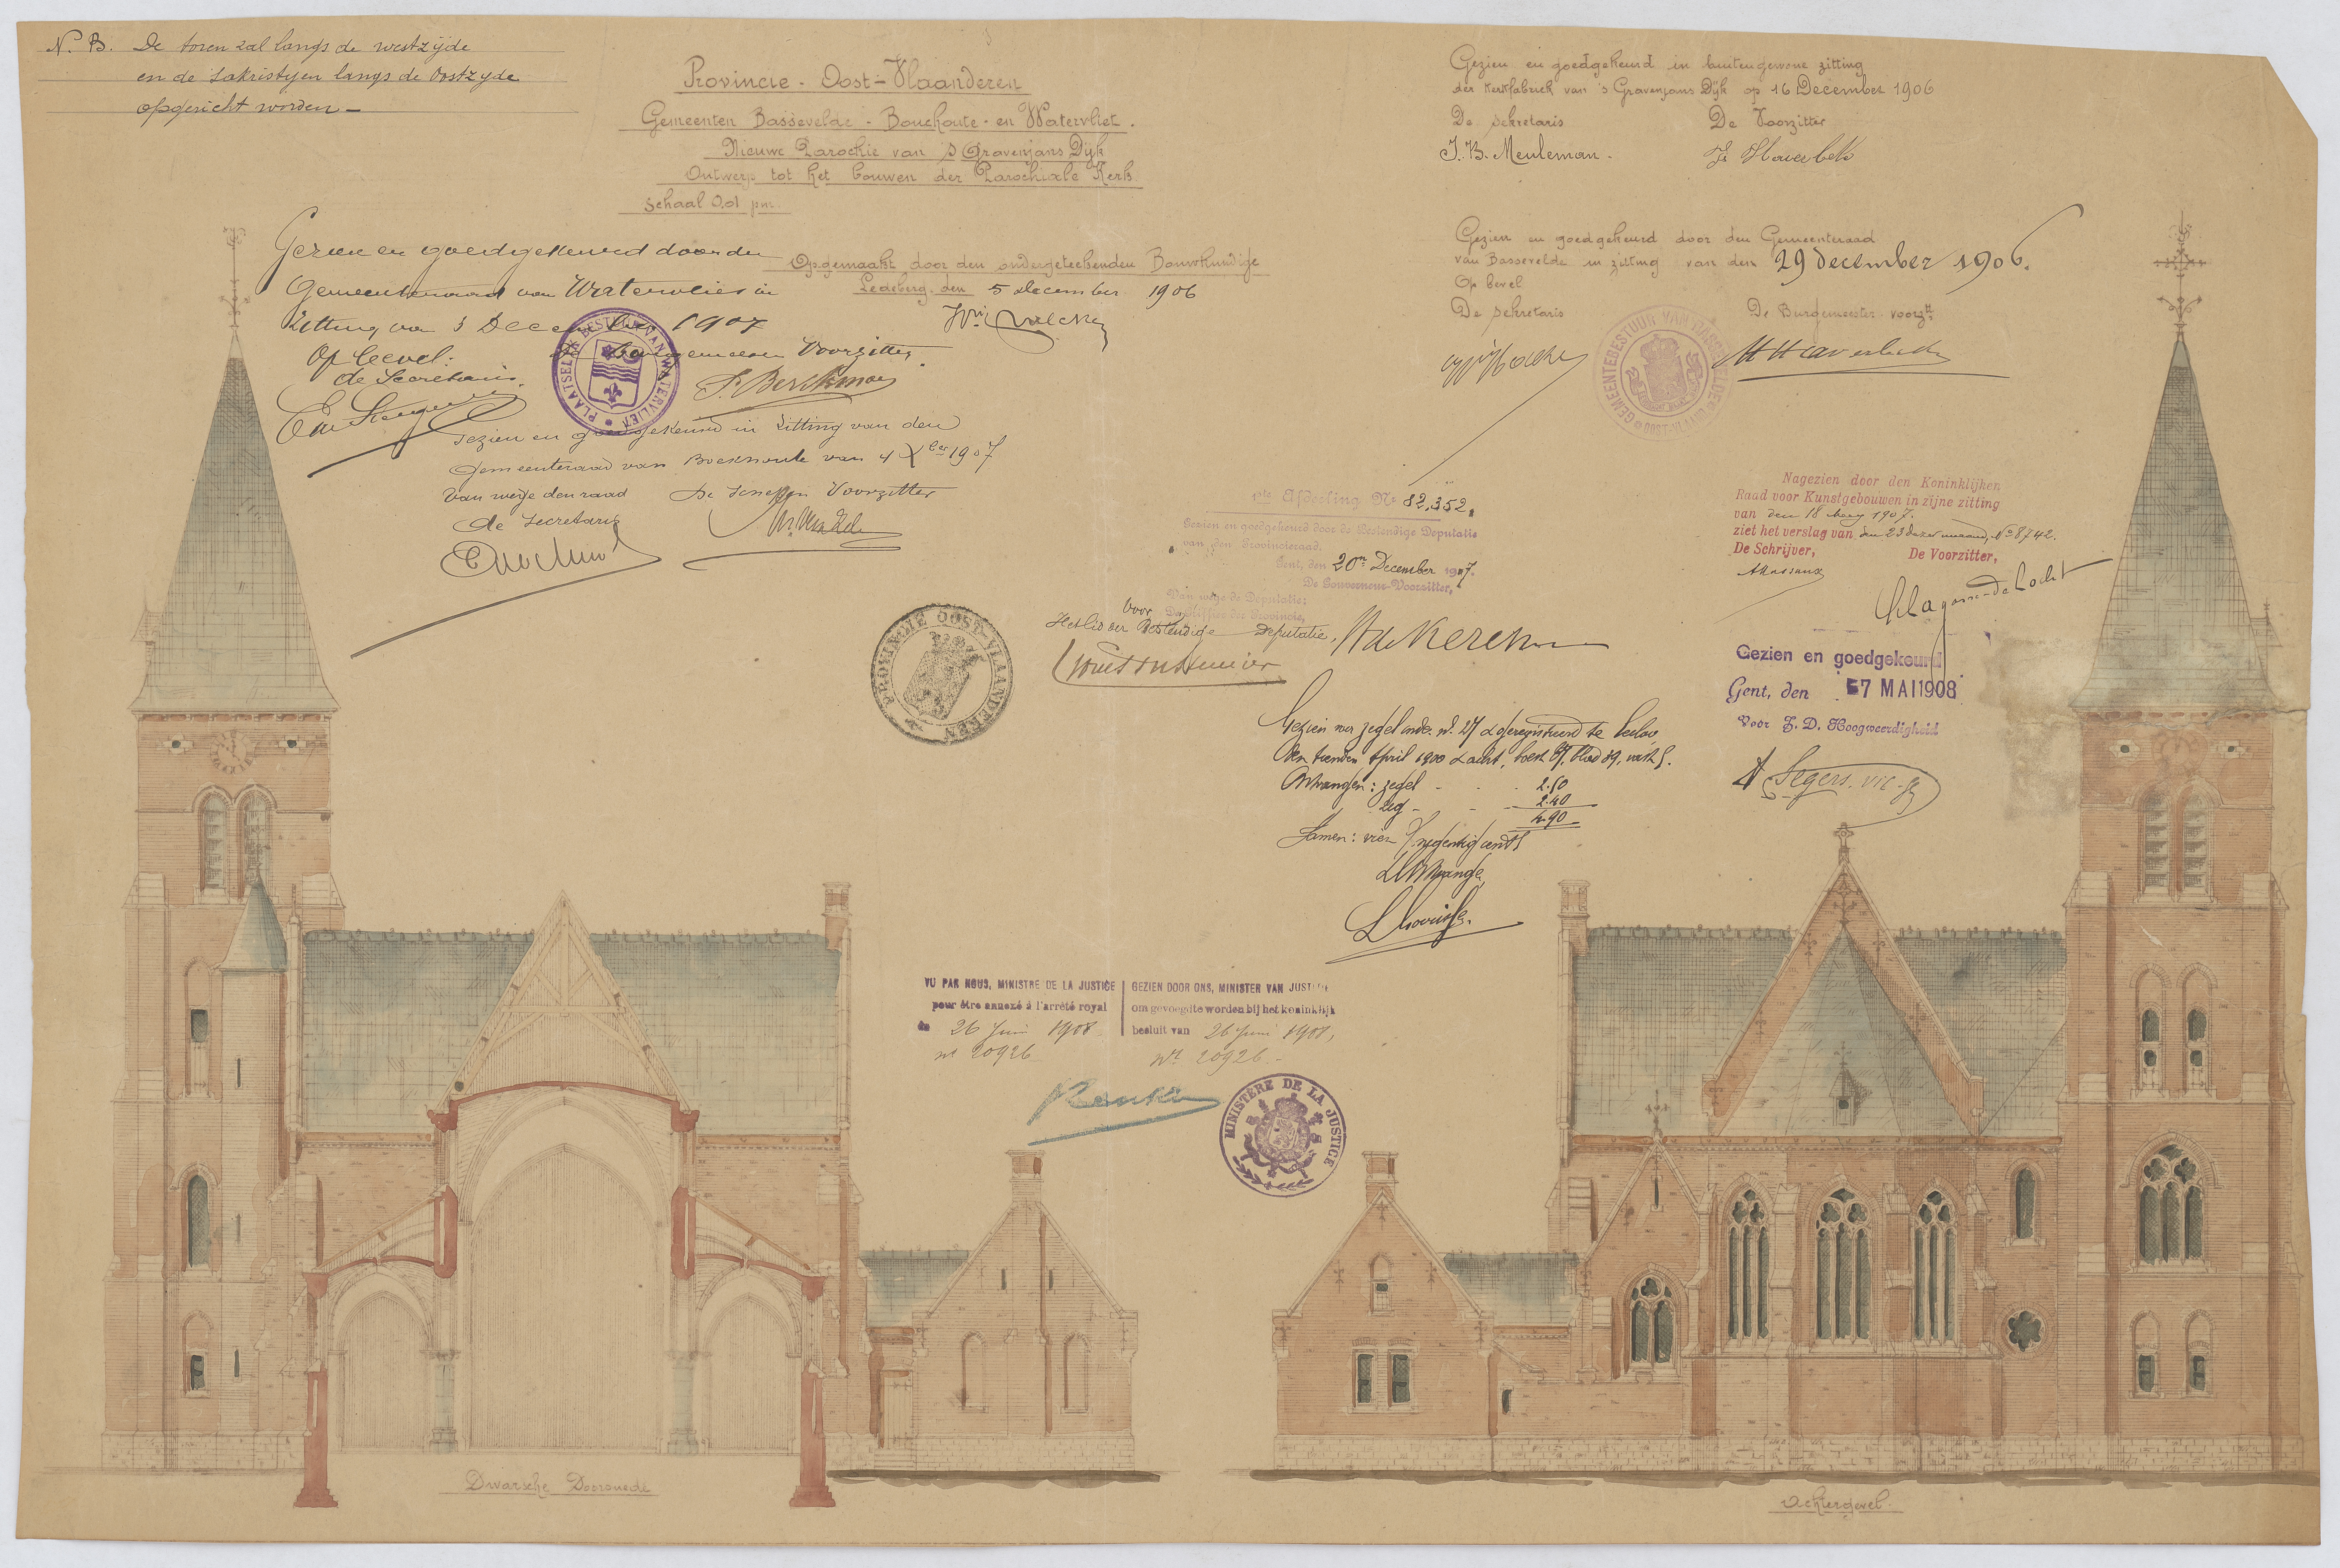 N. B. De toren zal langs de westzijde
en de sakristijen langs de Oostzyde
opgericht worden —
Provincie - Oost-Vlaanderen
Gemeenten Bassevelde - Bouchoute - en Watervliet.
Nieuwe Parochie van 's Gravenjans Dijk
Ontwerp tot het bouwen der Parochiale Kerk
Schaal 0.01 pm.
Opgemaakt door den ondergeteekenden Bouwkundige
Ledeberg den 5 december 1906
Gezien en goedgekeurd in buitengewone zitting
der Kerkfabriek van 's Gravenjans Dijk op 16 December 1906
De Sekretaris De Voorzitter
J. B. Meuleman.
Gezien en goedgekeurd door den Gemeenteraad
van Bassevelde in zitting van den 29 december 1906.
Op bevel
De Sekretaris De Burgemeester voorzr
GEMEENTEBESTUUR VAN
OOST-VLAANDEREN
Gezien en goedgekeurd door den
Gemeenteraad van Watervliet in
Zitting van 3 December 1907
Op bevel: De Burgemeester Voorzitter,
de Secretaris,
PLAATSELIJK BESTUUR VAN WATERVLIET
Gezien en goedgekeurd in zitting van den
Gemeenteraad van Bouchoute van 4 Xber 1907
Van wege den raad De Schepen Voorzitter
de Secretaris
PROVINCIE OOST-VLAANDEREN
Afdeeling No 82,352.
Gezien en goedgekeurd door de Bestendige Deputatie
van den Provincieraad.
Gent, den 20n December 1907.
De Gouverneur-Voorzitter,
Van wege de Deputatie:
De Griffier der Provincie,
Voor
Het lid der Bestendige Deputatie,
Nagezien door den Koninklijken
Raad voor Kunstgebouwen in zijne zitting
van den 18 1907.
ziet het verslag van den 23 dezer maand, No 8742.
De Schrijver, De Voorzitter,
Lagasse-de Locht
Gezien en goedgekeurd
Gent, den 7 MAI 1908
Voor Z. D. Hoogweerdigheid
Segers. vic. g
Gezien voor zegel onder nr 27 Geregistreerd te
den tienden April 1900 & acht, boek 67, blad 89, vak 5.
Ontvangen: zegel - - - 2.50
reg - - - 2.40
4.90
Samen: vier fr negentig cent
VU PAR NOUS, MINISTRE DE LA JUSTICE
pour être annexé à l'arrêté royal
du 26 Juin 1908
no 20926
GEZIEN DOOR ONS, MINISTER VAN JUSTITIE
om gevoegd te worden bij het koninklijk
besluit van 26 Juni 1908,
nr 20926 -
MINISTÈRE DE LA JUSTICE
Dwarsche Doorsnede
Achtergevel.